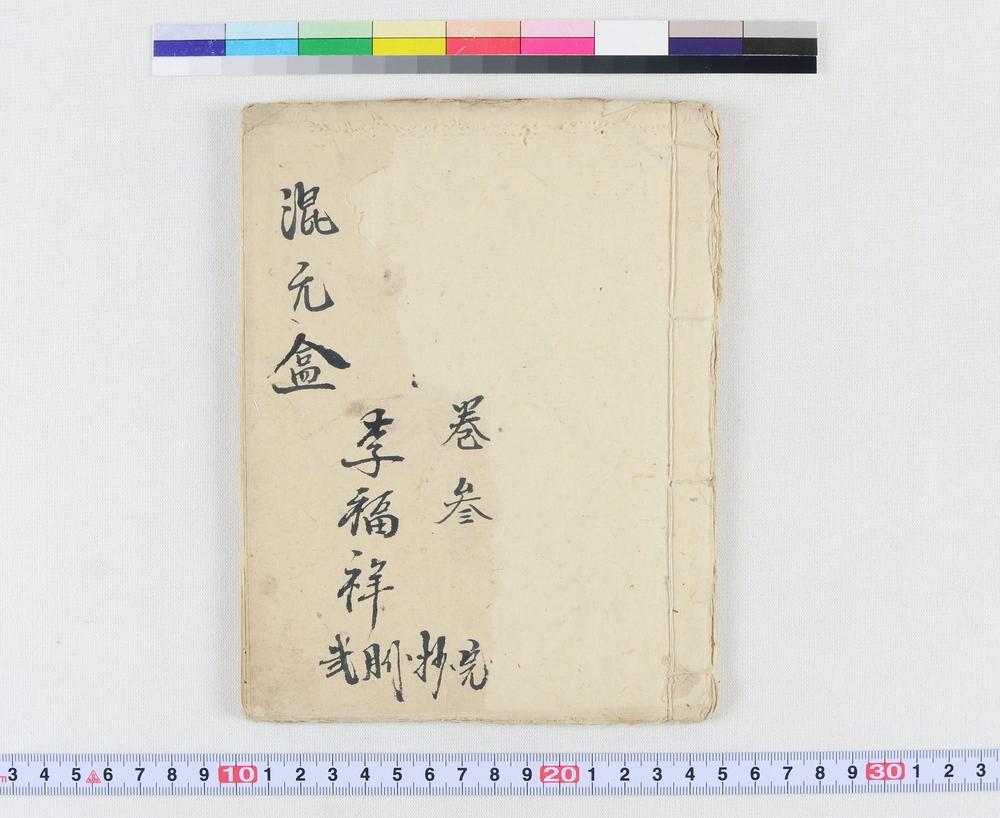 卷叁
李福祥
混元盒
抄完
3 4 5 6 7 8 9 10 1 2 3 4 5 6 7 8 9 20 1 2 3 4 5 6 7 8 9 30 1 2 3